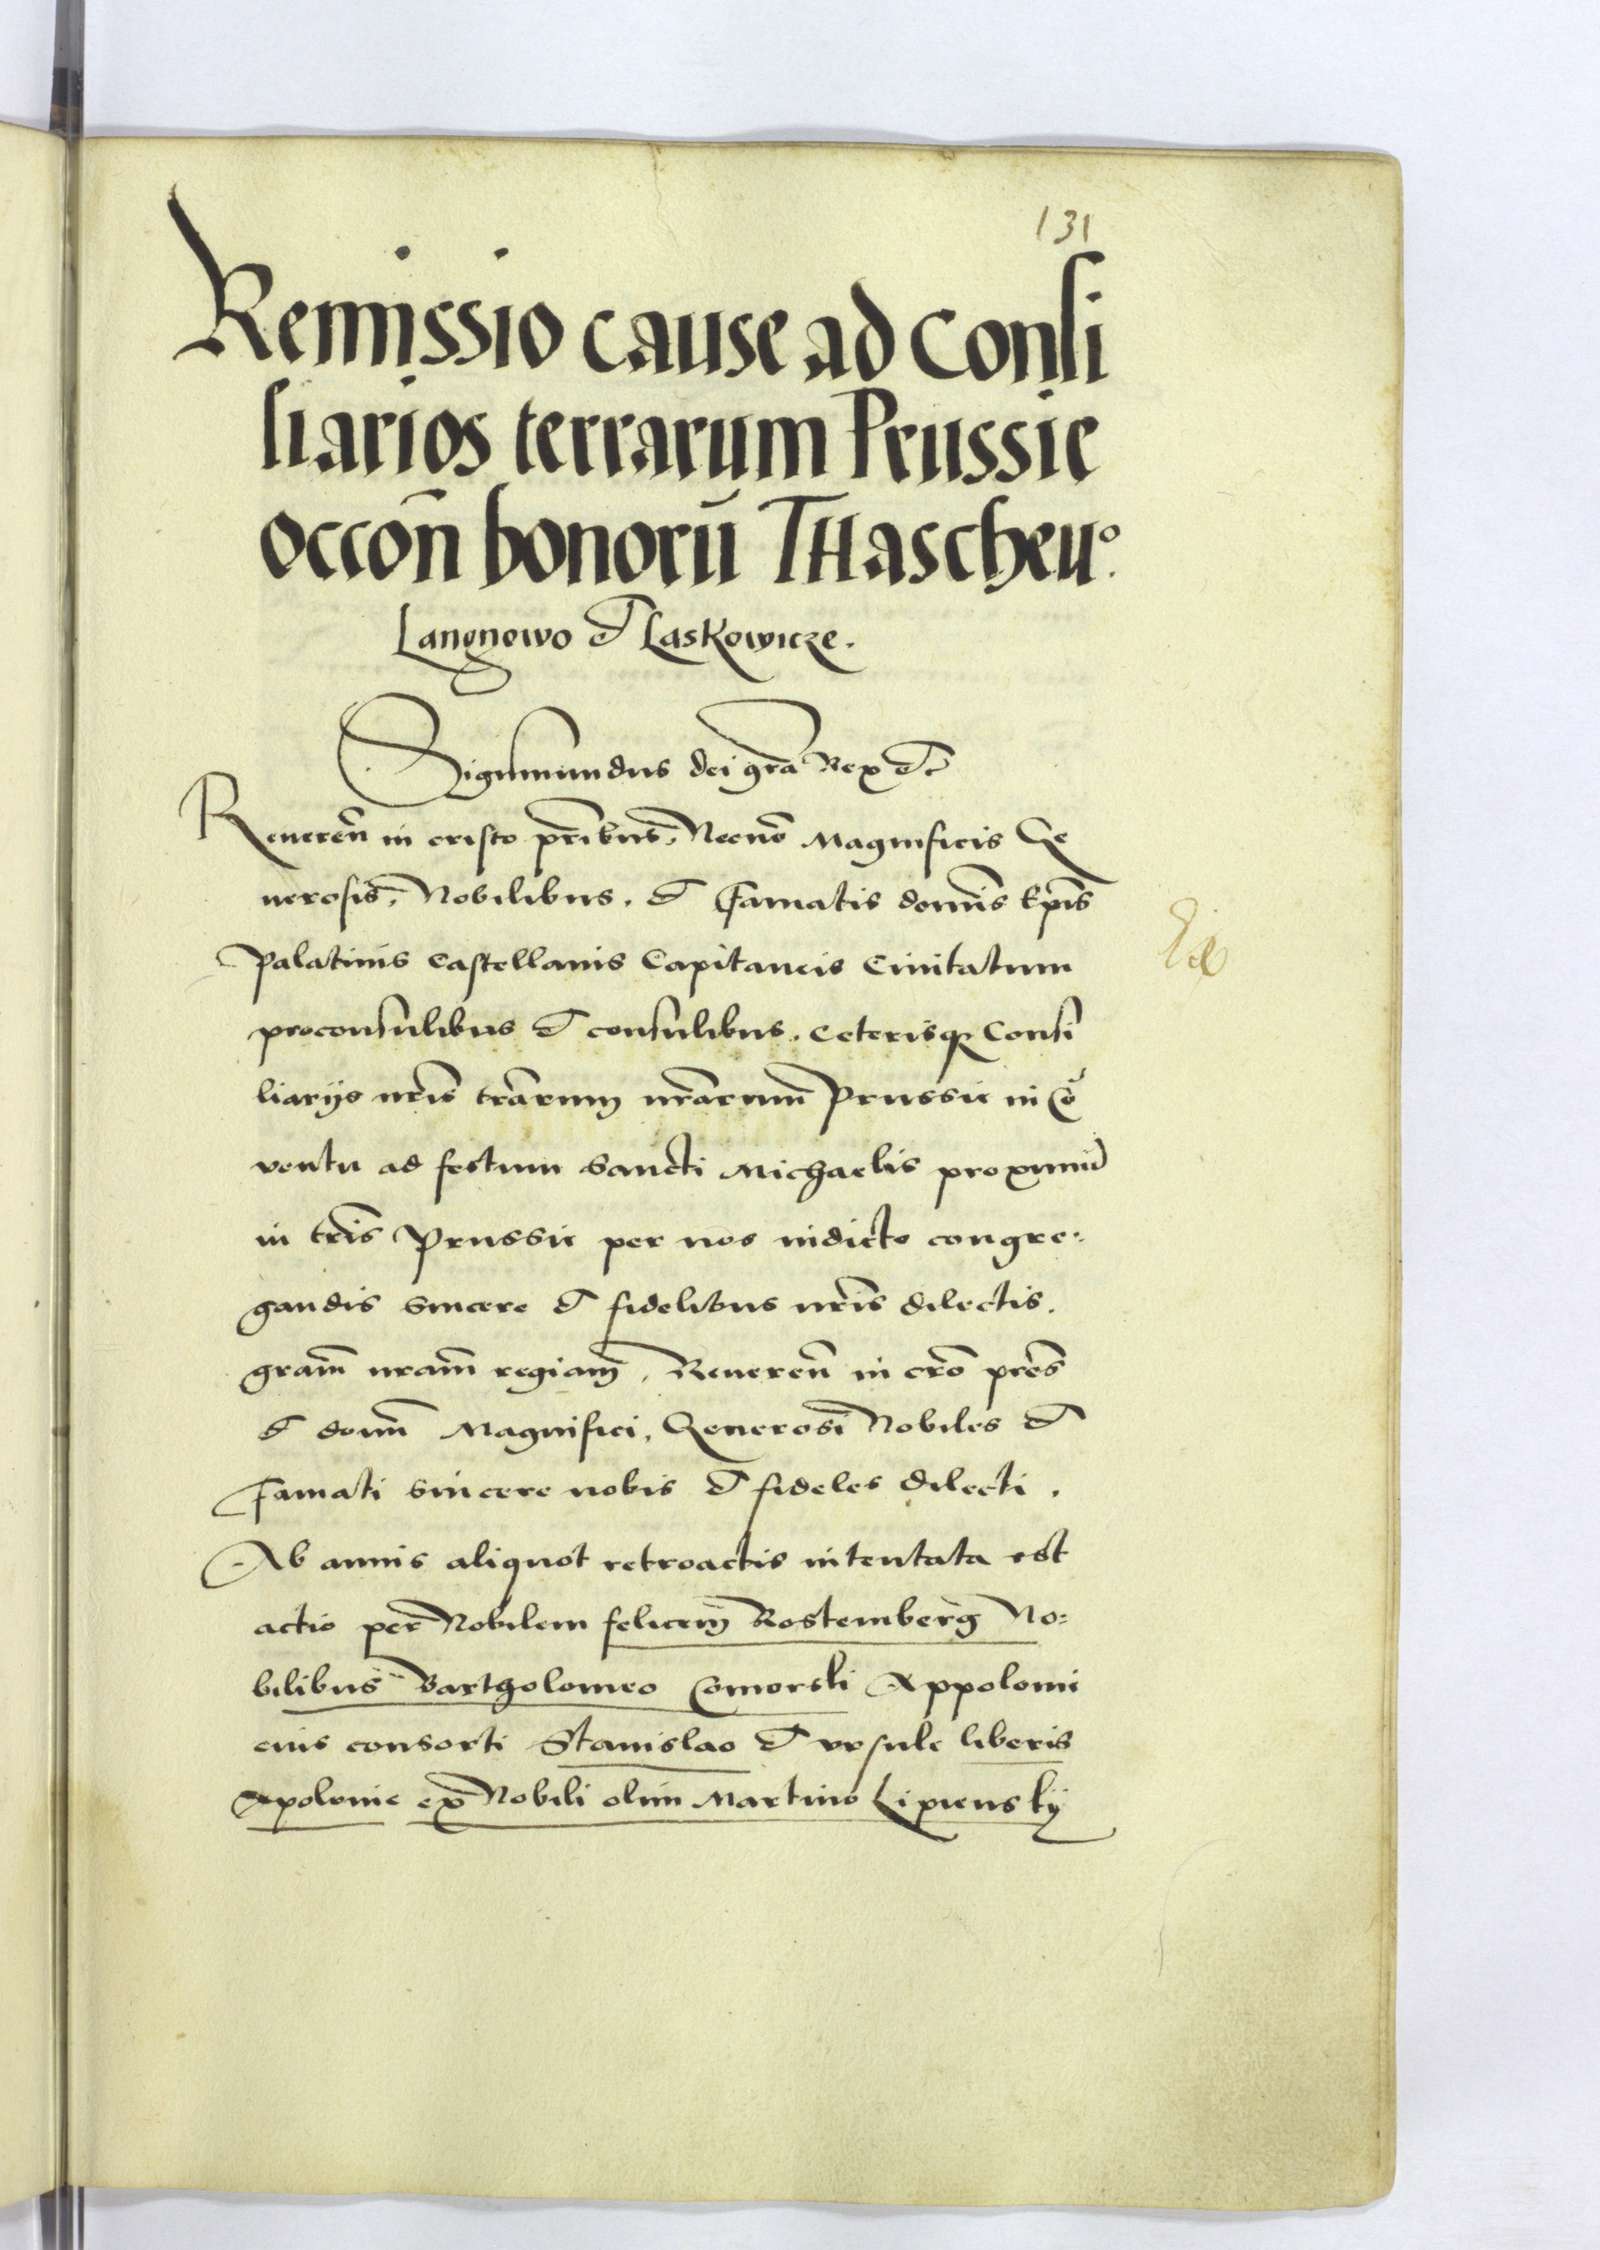 131
Remissio cause ad Consi
liarios terrarum Prussie
occōn bonorū THascheuº.
Langnowo et Laskowicze.
Sigismundus dei gra Rex etc
Reueren in cristo pribus, Necno Magnificis Ge
nerosis, Nobilibus, et Famatis domīs Epis
Palatinis Castellanis Capitaneis Ciuitatum
proconsulibus et consulibus, ceterisq Consi
liarijs nris trarum nrarum Prussie in Cō
uentu ad festum Sancti Michaelis proximū
in tris Prussie per nos indicto congre-
gandis sincere et fidelibus nris dilectis.
gram nram regiam, Reueren in cro pres
et domī Magnifici, Generosi Nobiles et
Famati sincere nobis et fideles dilecti.
Ab annis aliquot retroactis intentata est
actio per Nobilem felicem Rostemberg No-
bilibus Bartholomeo Comorski Appolonie
eius consorti Stanislao et vrsule liberis
Apolonie ex Nobili olim Martino Lipienskij